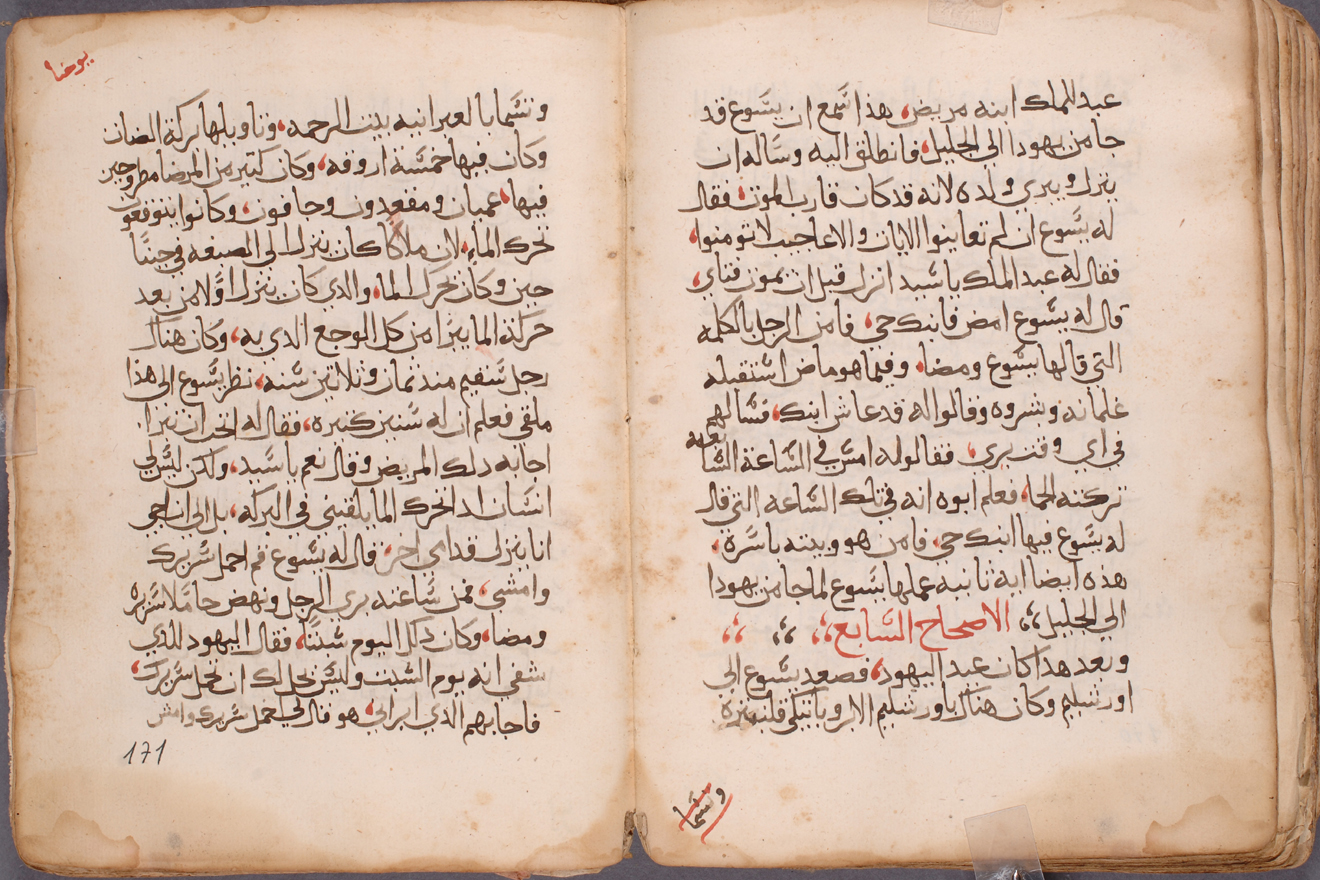 عبد الملك ابنه مريض، هذا سمع ان يسوع قد
جا من يهودا الى الجليل، فانطلق اليه وساله ان
ينزل ويبري ولده لانه قد كان قارب الموت، فقال
له يسوع ان لم تعاينوا الايات والاعاجيب لا تومنوا،
فقال له عبد الملك يا سيد انزل قبل ان يموت فتاي،
قال له يسوع امض فابنك حي، فامن الرجل بالكلمه
التي قالها يسوع ومضا، وفيما هو ماض استقبله
غلمانه وبشروه وقالوا له قد عاش ابنك، فسالهم
في اي وقت بري، فقالوا له امس في الساعة السابعه
تركته الحما، فعلم ابوه انه في تلك الساعه التي قال
له يسوع فيها ابنك حي، فامن هو وبيته باسره،
هذه ايضا ايه ثانيه عملها يسوع لما جا من يهودا
الى الجليل، الاصحاح السابع
وبعد هدا كان عيد اليهود، فصعد يسوع الى
اورشليم وكان هناك باورشليم
وتسما
يوحنا
وتسما بالعبرانيه بيت الرحمه، وتاويلها بركة الضان
وكان فيها خمسة اروقه، وكان كتير من المرضا مطروحين
فيها، عميان ومقعدون وجافون، وكانوا يتوقعون
تحرك الماء، لان ملاكا كان ينزل الى الصبغه في حينا
حين وكان يحرك الما، والدي كان ينزل اولا من بعد
حركة الما يبرا من كل الوجع الدي به، وكان هناك
رجل سقيم مند تمان وثلاتين سنه، نظر يسوع الى هذا
ملقى فعلم ان له سنين كتيره، فقال له اتحب ان تبرا.
اجابه دلك المريض وقال نعم يا سيد، ولكن ليس لي
انسان ادا تحرك الما يلقيني في البركه، بل الى ان اجي
انا ينزل قدامي اخر، قال له يسوع قم احمل سريرك
وامشي، فمن ساعته بري الرجل ونهض حاملا سريره
ومضا، وكان دلك اليوم سبتا، فقال اليهود للدي
شفي انه يوم السبت وليس يحل لك ان تحمل سريرك،
فاجابهم الدي ابراني، هو قال لي احمل سريرك وامش
171